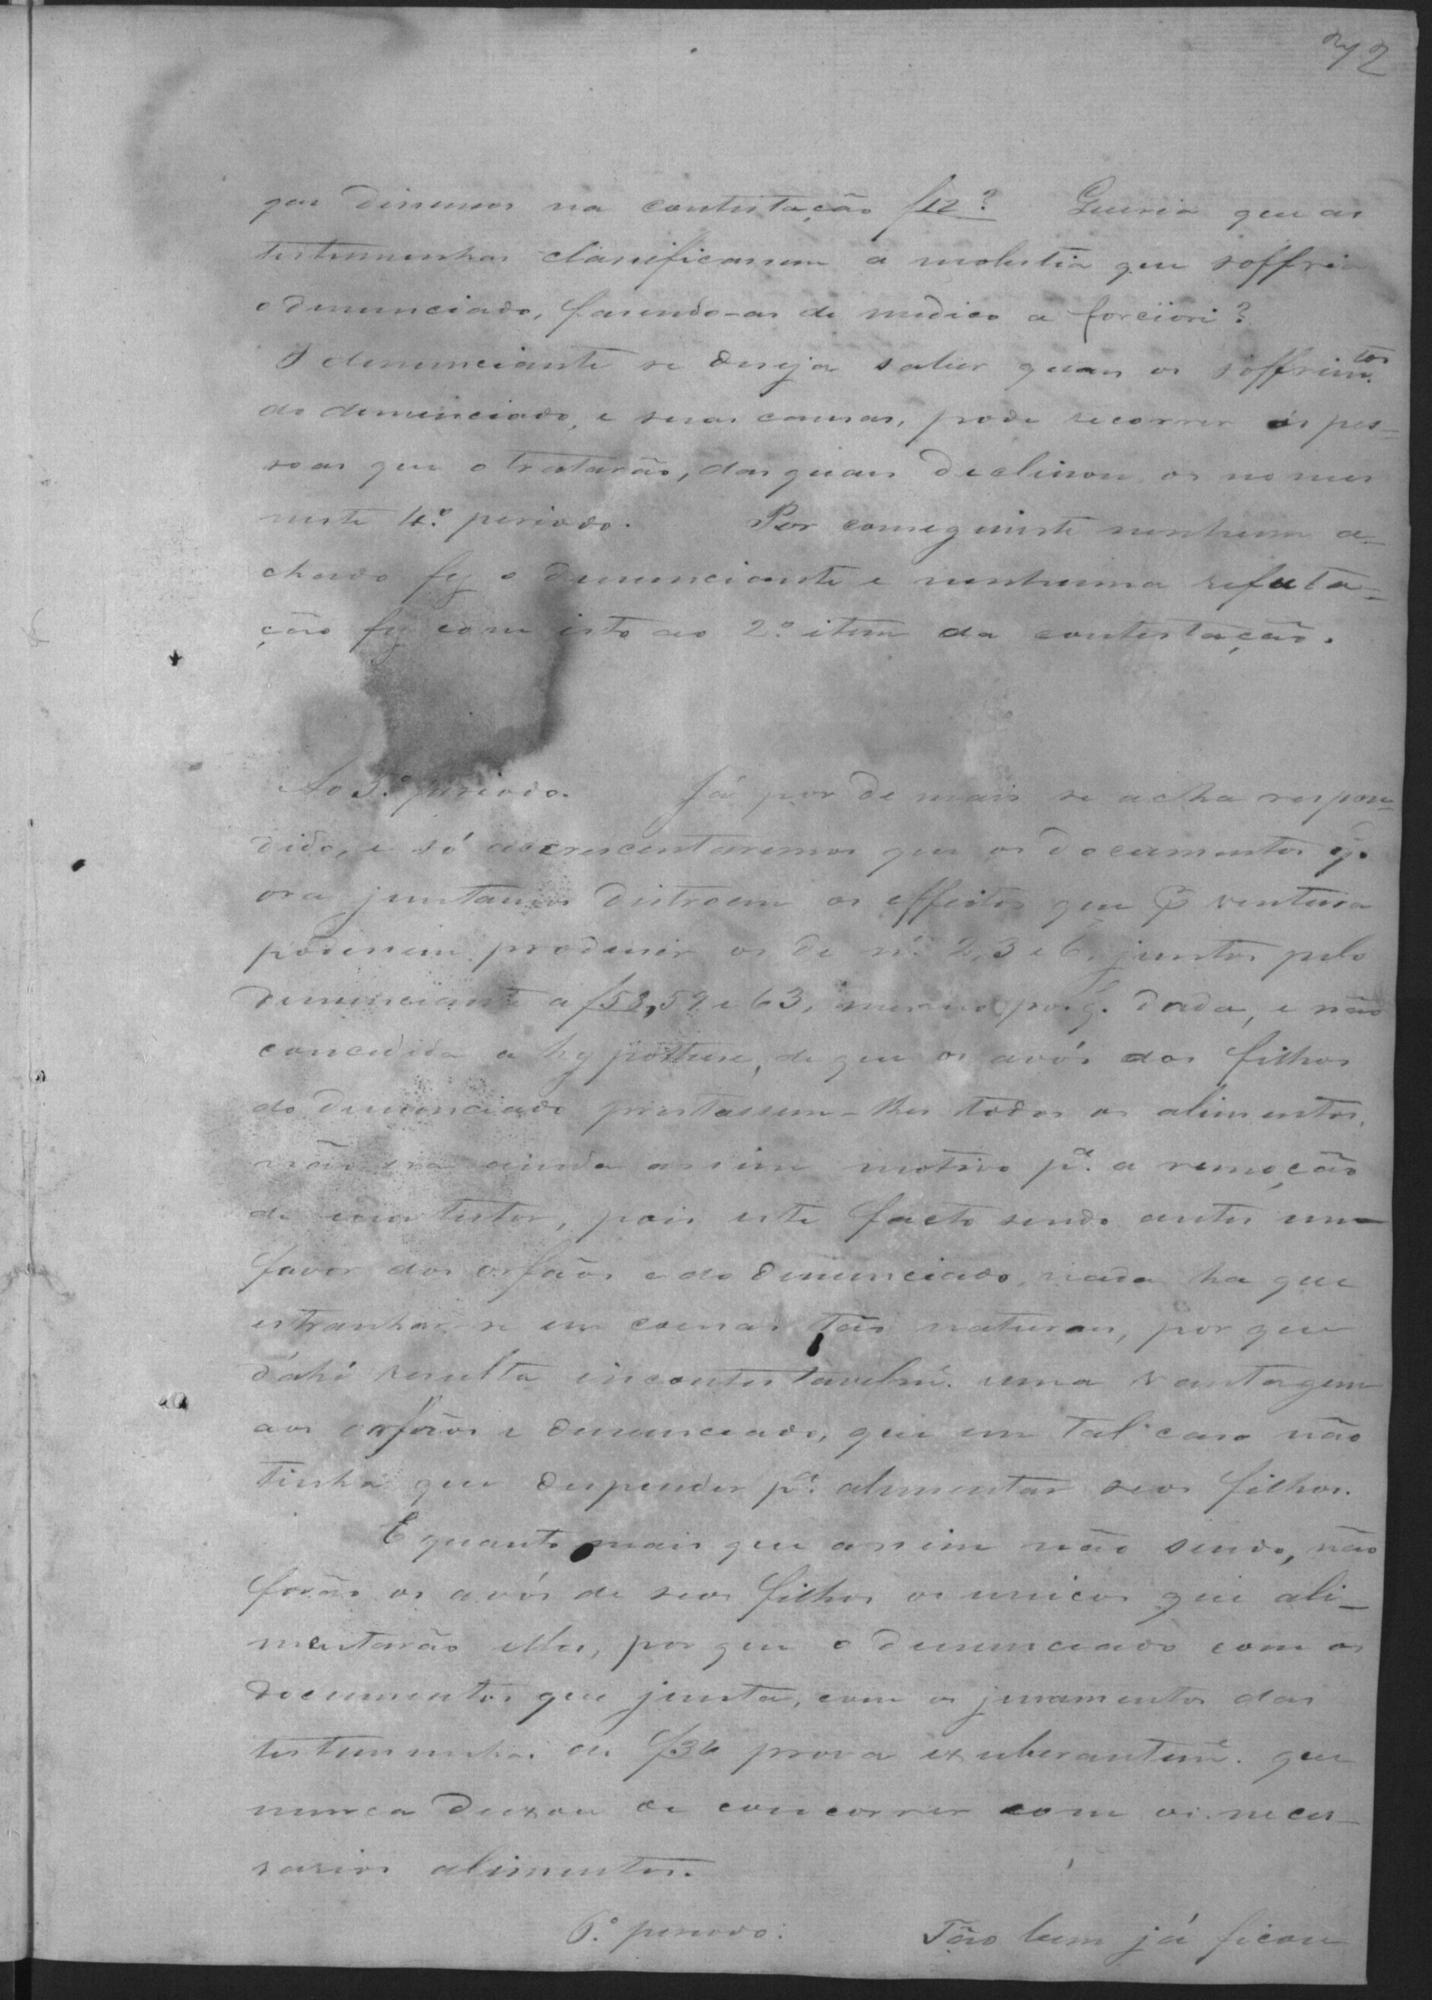 72
que dissemos na contestação f12? Queria que as
testemunhas classificassem a molestia que soffria
o denunciado, fasendo-as de medico a forciori?
O denunciante se deseja saber quaes os soffrim.tos
do denunciado, e seras causas, pode recorrer ás pes-
soas que o tratarão, das quaes declinou os nomes
neste 4.º periodo. Por conseguinte nenhum a-
chado fez o denunciante e nenhuma refuta-
ção fez com isto ao 2.º item da contestação.
Ao 5.º periodo. Já por de mais se acha respon-
dido, e só accrescentaremos que os documentos q.
ora juntamos distroem os effeitos que p ventura
podessem produsir os de n.º 2, 3 e 6, juntos pelo
denunciante a f58, 59 e 63, mesmo por q. dada, e não
concedida a hypothese, de que os avós dos filhos
do denunciado prestassem-lhes todos os alimentos,
não era ainda assim motivo p.ª a remoção
de um tutor, pois este facto sendo antes um
favor dos orfãos e do denunciado, nada ha que
estranhar-se em cousas tão naturaes, por que
d'ahi resulta incontestavelm.e uma vantagem
aos orfãos e denunciado, que em tal caso não
tinha que despender p.ª alimentar seos filhos.
E quanto mais que assim não sendo, não
forão os avós de seos filhos os unicos que ali-
mentarão elles, por que o denunciado com os
documentos que junta, com os juramentos das
testemunhas de f36 prova exuberantem.e que
nunca deixou de concorrer com os neces-
sarios alimentos.
6.º periodo. Tão bem já ficou